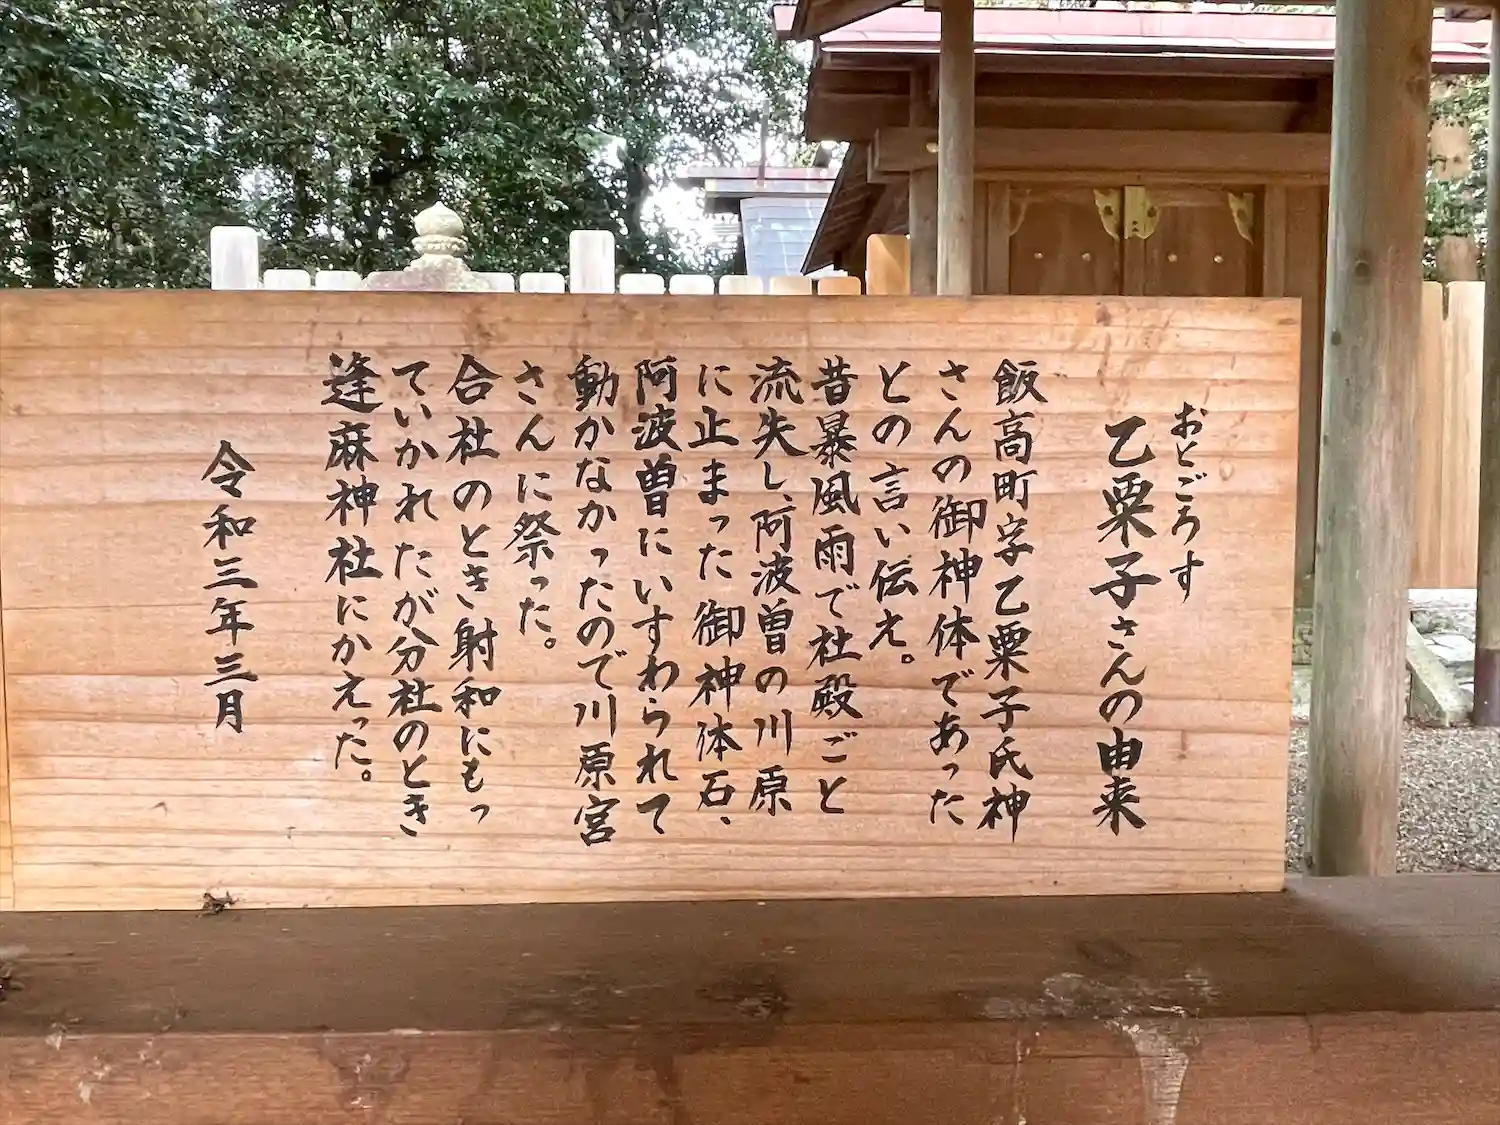 おとごろす
乙栗子さんの由来
飯高町字乙栗子氏神
さんの御神体であった
との言い伝え。
昔暴風雨で社殿ごと
流失し、阿波曽の川原
に止まった御神体石、
阿波曽にいすわられて
動かなかったので川原宮
さんに祭った。
合社のとき射和にもっ
ていかれたが分社のとき
逢麻神社にかえった。
令和三年三月